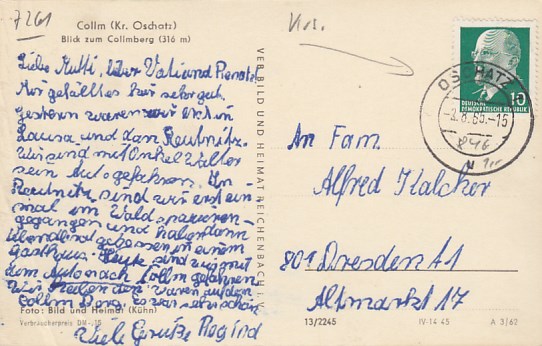 7261
Collm (Kr. Oschatz)
Blick zum Collmberg (316 m)
Liebe Mutti, lieber Vati und Renate
Mir gefällt es hier sehr gut.
Gestern waren wir erst in
Lausa und dann Reudnitz.
Wir sind mit Onkel Walter
sein Auto gefahren. In
Reudnitz sind wir erst ein
mal im Wald spazieren-
gegangen und haben dann
Abendbrot gegessen in einem
Gasthaus. Heute sind wir mit
dem Auto nach Collm gefahren
Wir waren auf dem
Collm Berg. Es war sehr schön
Foto: Bild und Heimat (Kühn)
Verbraucherpreis DM -,15
Viele Grüße
VEB BILD UND HEIMAT REICHENBACH I. V.
DEUTSCHE
DEMOKRATISCHE REPUBLIK
10
OSCHATZ
-3.8.65.-15
An Fam.
Alfred Kalcher
801 Dresden A1
Altmarkt 17
13/2245
IV-14-45
A 3/62